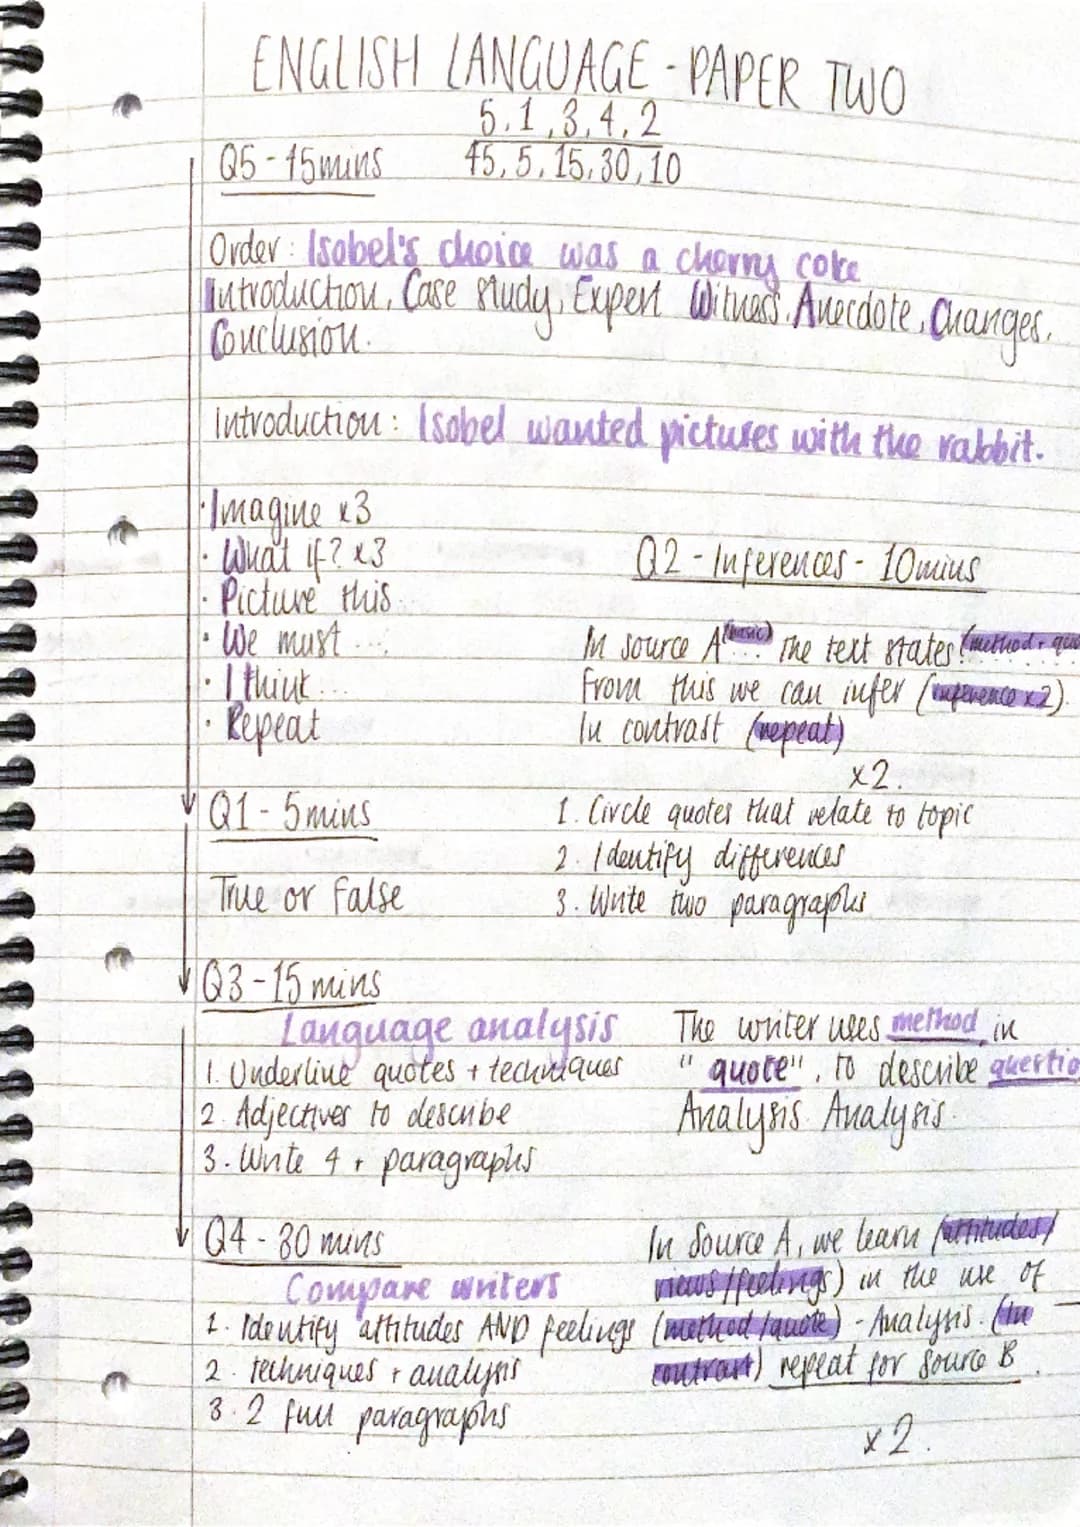 ENGLISH LANGUAGE - PAPER TWO
5, 1, 3, 4, 2
45, 5, 15, 30, 10
Q5 - 45mins
Order: Isobel's choice was a cherry coke
Introduction, Case study, Expert Witness, Anecdote, Changes,
Conclusion.
Introduction: Isobel wanted pictures with the rabbit.
· Imagine x3
· What if? x3
· Picture this
· We must ...
· I think ...
· Repeat
Q2 - Inferences - 10mins
In source A (basic) ... The text states (method +
From this we can infer (inference x2).
In contrast (repeat)
x2.
1. Circle quotes that relate to topic
2. Identify differences
3. Write two paragraphs
Q1 - 5mins
True or False
Q3 - 15 mins
Language analysis
1. Underline quotes + techniques
2. Adjectives to describe
3. Write 4 + paragraphs
The writer uses method in
"quote", to describe questio
Analysis. Analysis.
Q4 - 30 mins
Compare writers
1. Identify attitudes AND feelings
2. techniques + analysis
3. 2 full paragraphs
In Source A, we learn (attitudes/
views/feelings) in the use of
(method/quote) - Analysis. (In
contrast) repeat for source B.
x2.